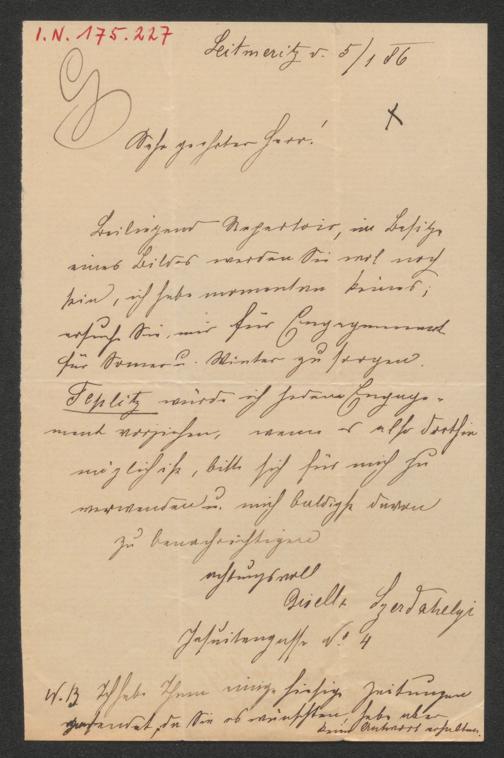 I.N. 175.227
Leitmeritz d. 5/1 86
Sehr geehrter Herr!
Beiliegend Repertoir, im Besitze
eines Bildes werden Sie wol noch
sein, ich habe momentan keines;
ersuche Sie, mir für Engagement
für Somer u. Winter zu sorgen.
Teplitz würde ich jedem Engage-
ment vorziehen, wenn es also dorthin
möglich ist, bitte sich für mich zu
verwenden u. mich baldigst davon
zu benachrichtigen
achtungsvoll
Gisella Szerdahelyi
Jesuitengasse No 4
N.B. Ich habe Ihnen einige hiesige Zeitungen
gesendet, da Sie es wünschten, habe aber
keine Antwort erhalten.